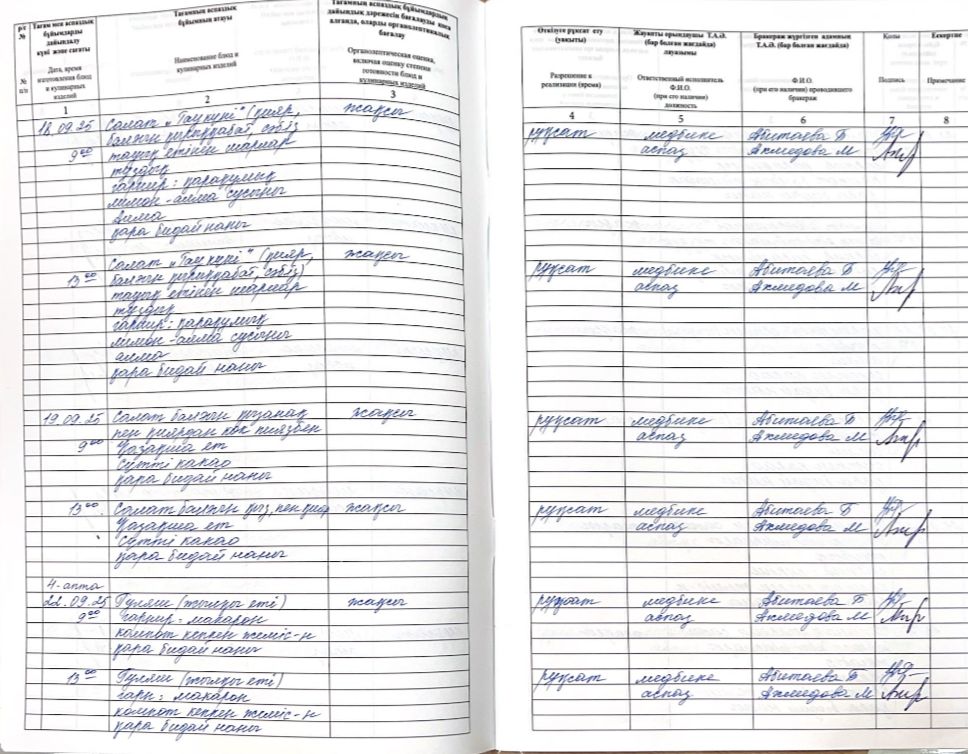 р/с №
Тағам мен аспаздық бұйымдарды дайындау күні және сағаты
Тағамның аспаздық бұйымның атауы
Тағамның аспаздық бұйымдардың дайындық дәрежесін бағалауды қоса алғанда, оларды органолептикалық бағалау
№ п/п
Дата, время изготовления блюд и кулинарных изделий
Наименование блюд и кулинарных изделий
Органолептическая оценка, включая оценку степени готовности блюд и кулинарных изделий
1 2 3
18.09.25 Салат „Тау күні" (қияр, жақсы
балғын бұрыш, сәбіз
9⁰⁰ тауық етінен шарлар
тұздық
гарнир: қарақұмық
лимон-алма сусыны
Алма
қара бидай наны
Салат „Тау күні" (қияр, жақсы
13⁰⁰ сәбіз)
тауық етінен шарлар
тұздық
гарнир: қарақұмық
лимон-алма сусыны
алма
қара бидай наны
19.09.25 Салат балғын қызанақ жақсы
пен қиярдан көк пиязбен
9⁰⁰ Қазақша ет
сүтті какао
қара бидай наны
13⁰⁰. Салат балғын қыз, пен қияр жақсы
Қазақша ет
сүтті какао
қара бидай наны
4-апта
22.09.25 Гуляш (жылқы еті) жақсы
9⁰⁰ Гарнир: макарон
компот кепкен жеміс-н
қара бидай наны
13⁰⁰ Гуляш (жылқы еті)
гарн: макарон
компот кепкен жеміс-н
қара бидай наны
Өткізуге рұқсат ету (уақыты)
Жауапты орындаушы Т.А.Ә. (бар болған жағдайда) лауазымы
Бракераж жүргізген адамның Т.А.Ә. (бар болған жағдайда)
Қолы
Ескертпе
Разрешение к реализации (время)
Ответственный исполнитель Ф.И.О. (при его наличии) должность
Ф.И.О. (при его наличии) проводившего бракераж
Подпись
Примечание
4 5 6 7 8
рұқсат медбике Абитаева Б
аспаз Ахмедова М
рұқсат медбике Абитаева Б
аспаз Ахмедова М
рұқсат медбике Абитаева Б
аспаз Ахмедова М
рұқсат медбике Абитаева Б
аспаз Ахмедова М
рұқсат медбике Абитаева Б
аспаз Ахмедова М
рұқсат медбике Абитаева Б
аспаз Ахмедова М